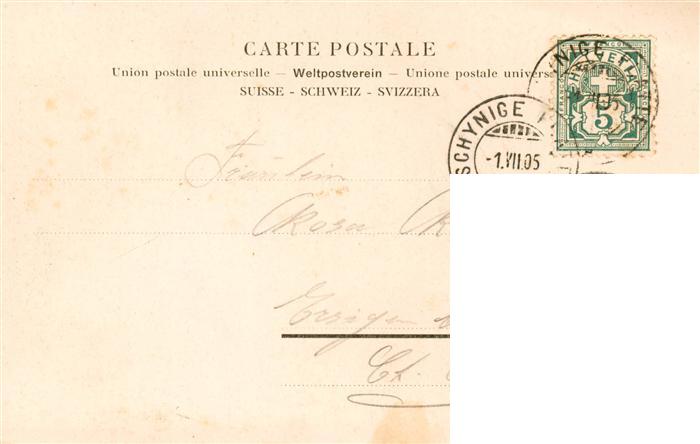 CARTE POSTALE
Union postale universelle – Weltpostverein – Unione postale univers
SUISSE - SCHWEIZ - SVIZZERA
NIGE
HELVETIA
FRANCO
5
SCHYNIGE P
-1.VII.05
Fräulein
Rosa
Ersigen
Ct.